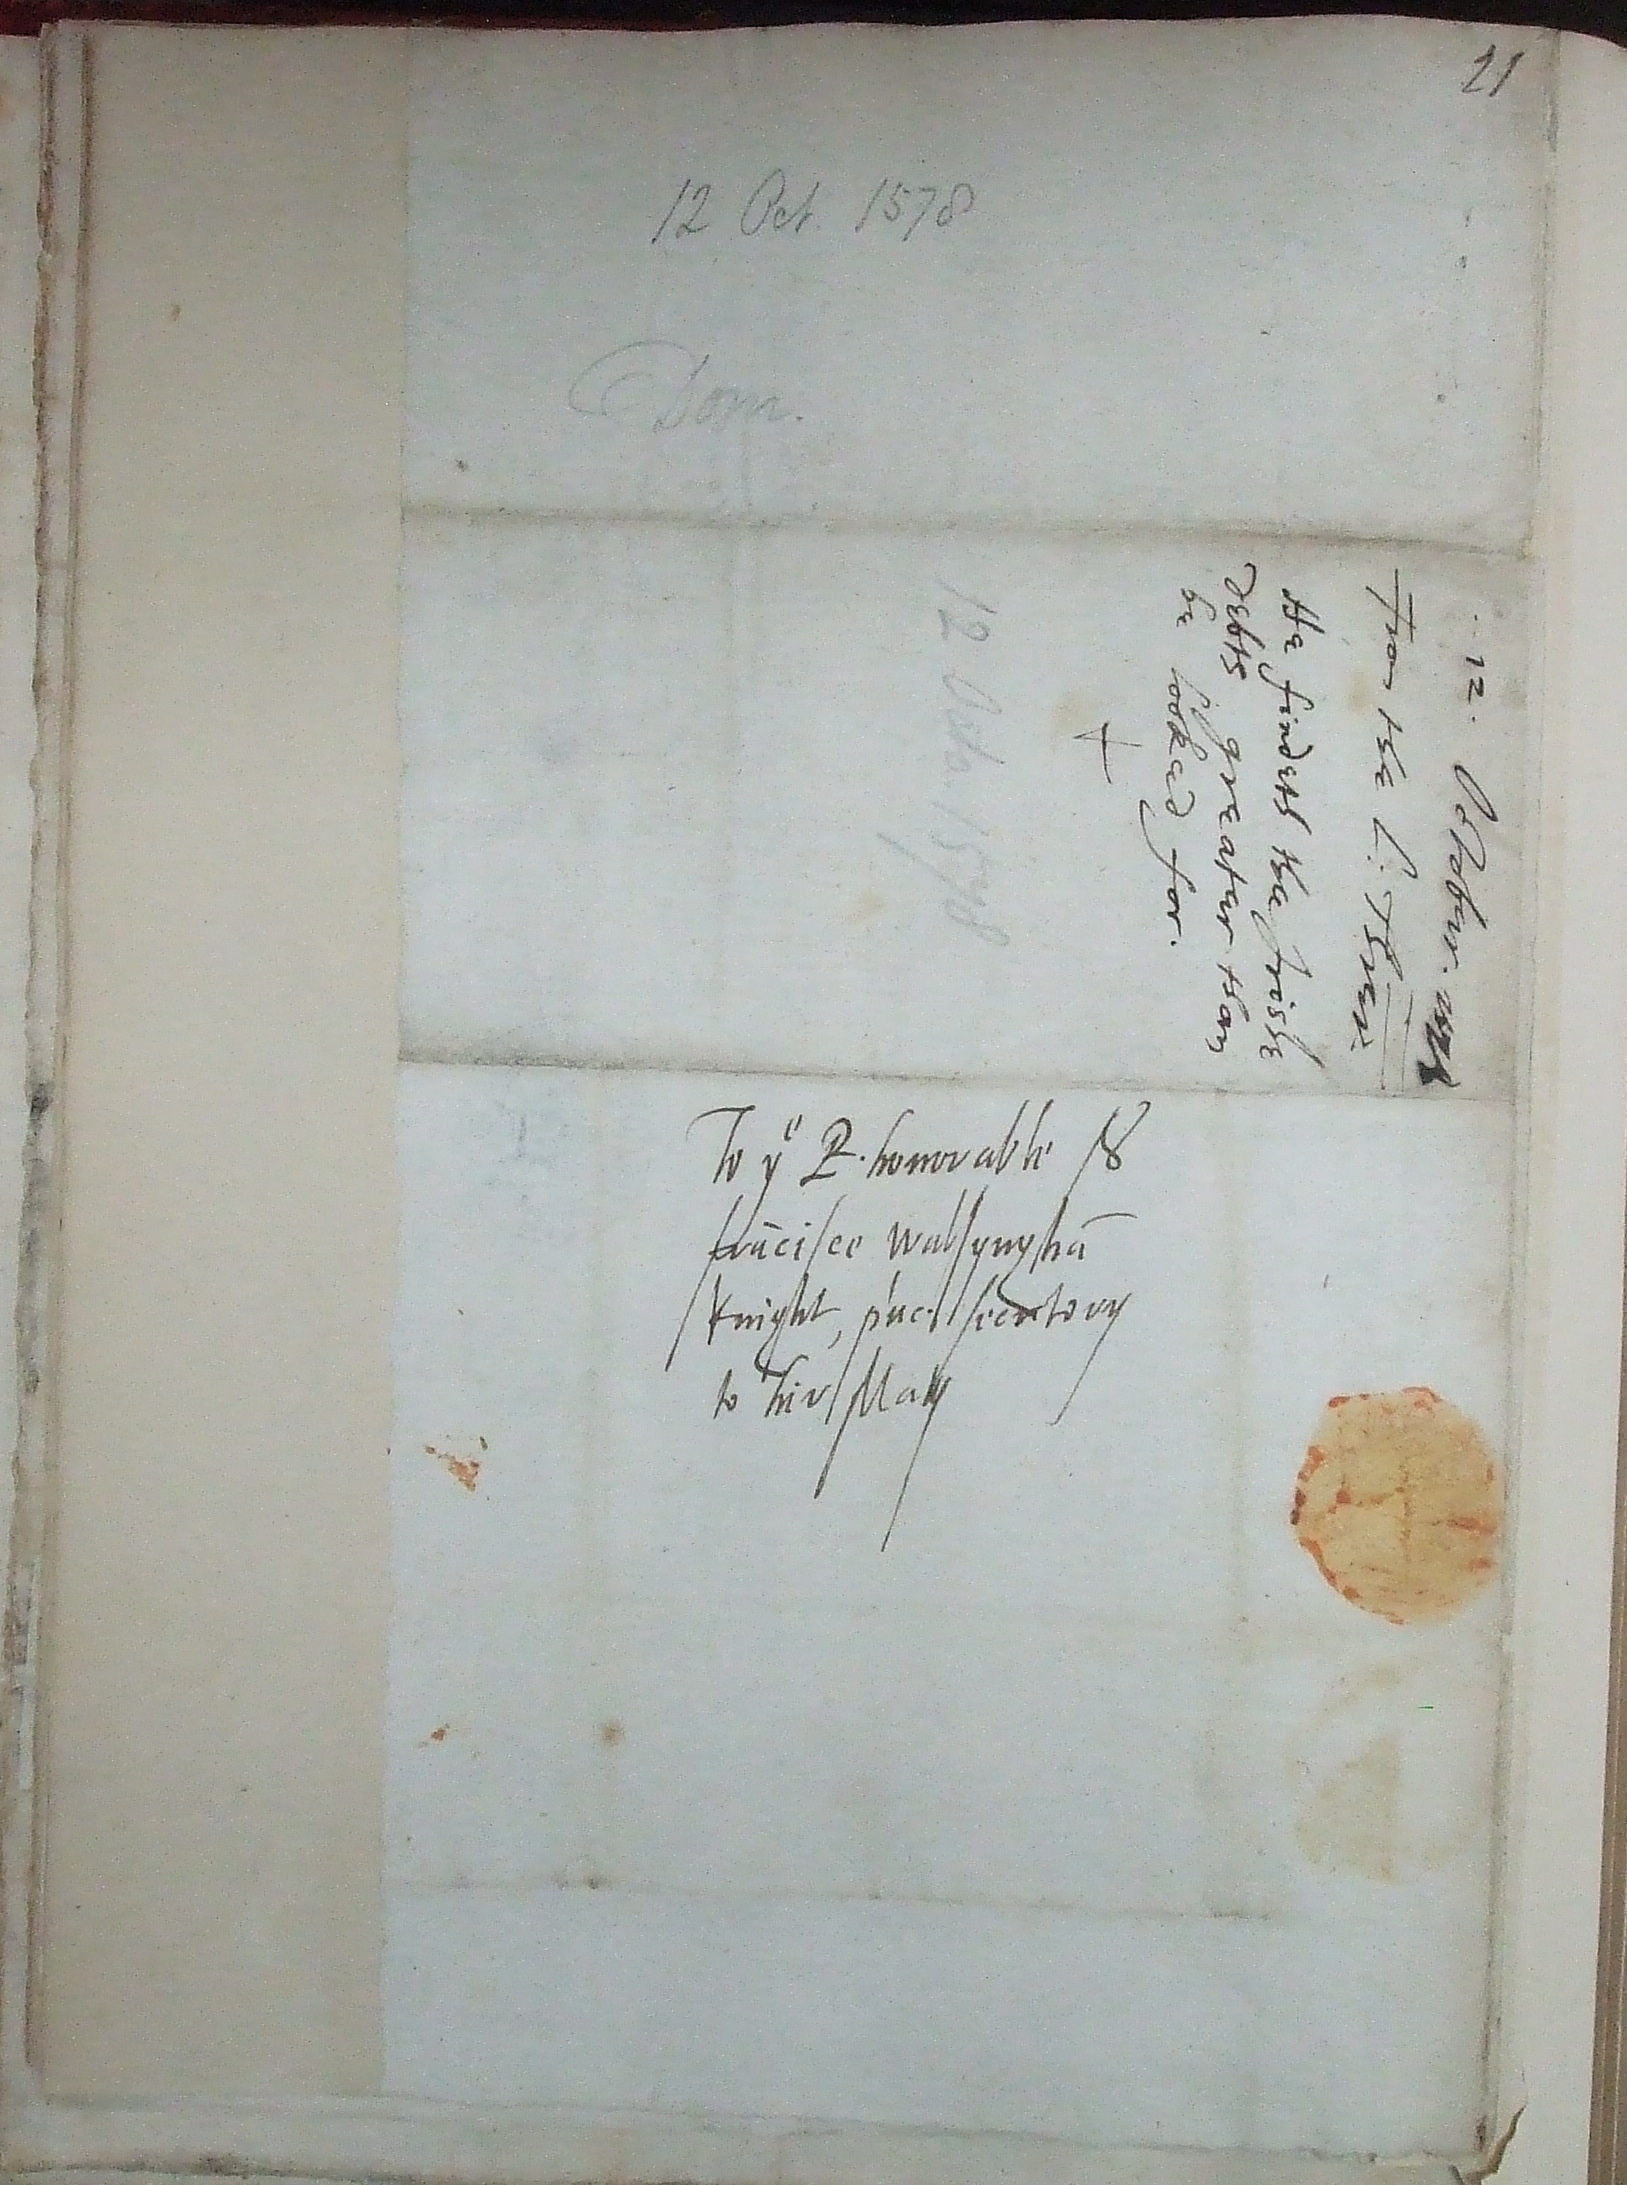 21
12 Oct. 1578
Dom.
12. October. 1578
From the L. Threr.
He findeth the frisse
debts greater then
be looked for.
12 Octob. 1578
To yͤ R. honorable Sʳ
frācisce walsynghā
knight, princ. secretory
to hir Maty